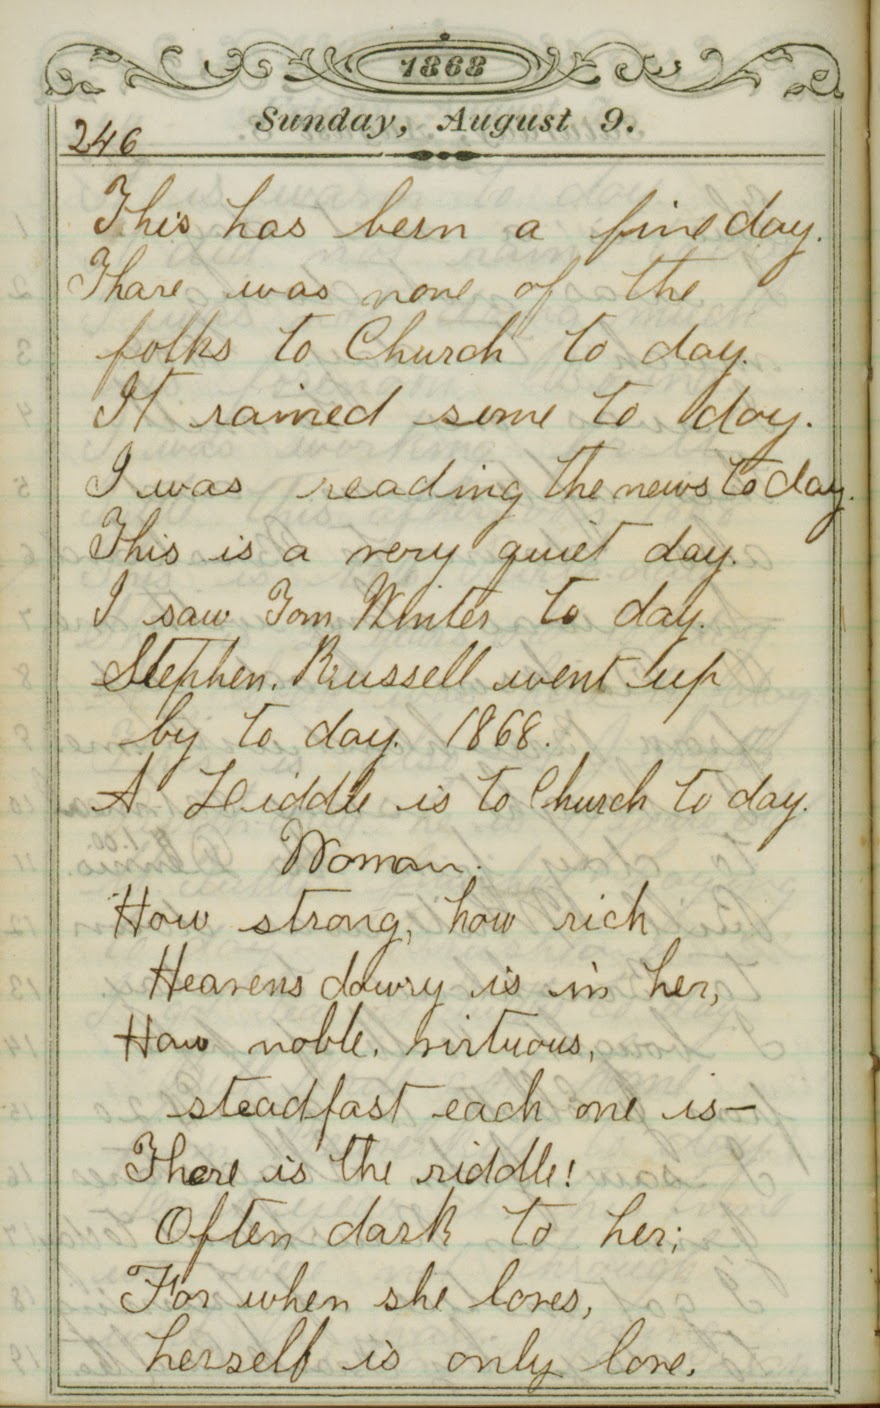 1868
Sunday, August 9.
246
This has been a fine day.
Thare was none of the
folks to Church to day.
It rained some to day.
I was reading the news to day.
This is a very quiet day.
I saw Tom Winter to day.
Stephen. Russell went up
by to day. 1868.
A Liddle is to Church to day.
Woman.
How strong, how rich
Heavens dowry is in her,
How noble, virtuous,
steadfast each one is—
There is the riddle!
Often dark to her;
For when she loves,
herself is only love.